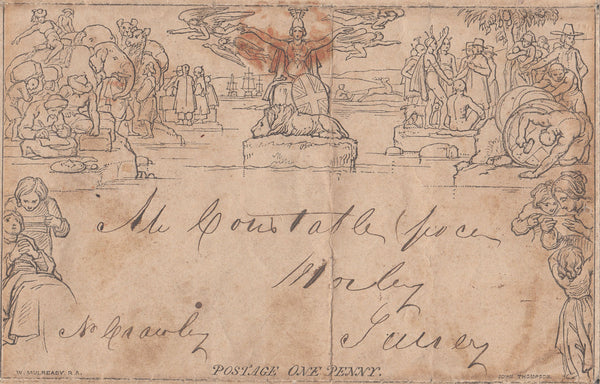 Mr Constable
Horley
Nr Crawley
Surrey
POSTAGE ONE PENNY.
W. MULREADY. R.A.
JOHN THOMPSON